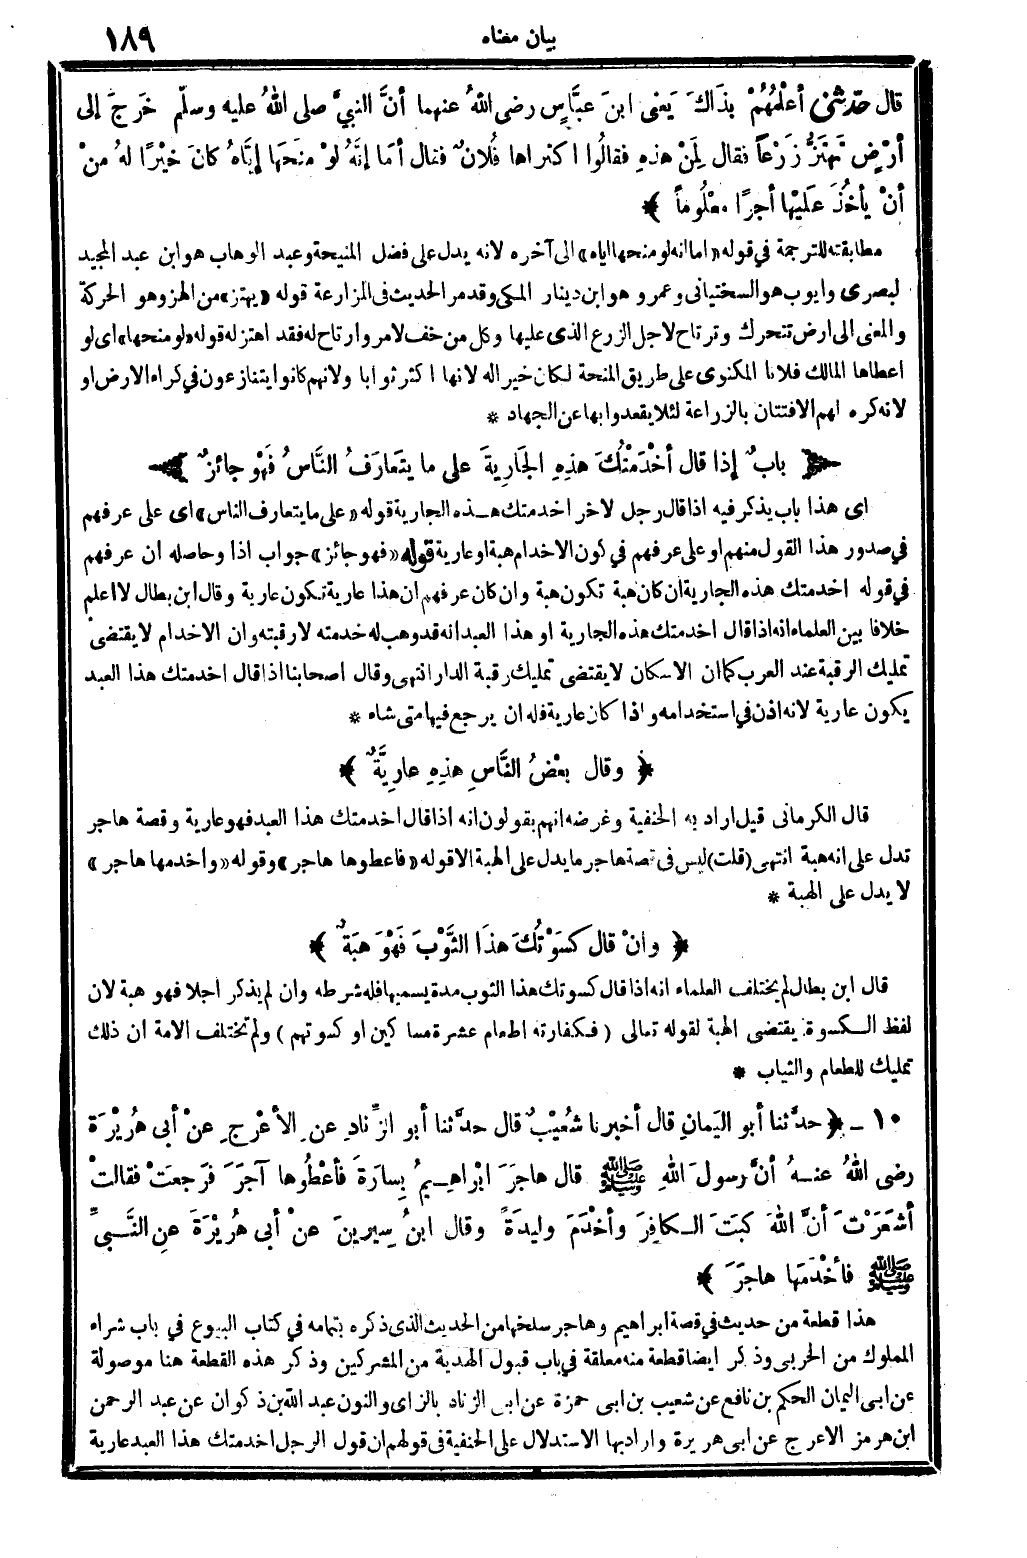 بيان معناه ١٨٩
قال حَدّثنى أعْلَمُهُمْ بِذَاكَ يَعْنى ابنَ عبَّاسٍ رضى اللهُ عنهما أنَّ النبيَّ صلى اللهُ عليه وسلّم خَرَجَ إلى
أرْضٍ تَهْتَزُّ زَرْعاً فقال لِمَنْ هذِهِ فقالُوا اكْتراها فُلانٌ فقال أمَا إنَّهُ لَوْ منَحَها إيَّاهُ كانَ خيْرًا لهُ منْ
أنْ يأخُذَ عَلَيْها أجرًا معْلُوماً ﴾
مطابقته للترجمة في قوله «اما انه لو منحها اياه» الى آخره لانه يدل على فضل المنيحة وعبد الوهاب هو ابن عبد المجيد
لبصرى وايوب هو السختيانى وعمرو هو ابن دينار المكى وقد مر الحديث فى المزارعة قوله «يهتز» من الهز وهو الحركة
والمعنى الى ارض تتحرك وترتاح لاجل الزرع الذى عليها وكل من خف لامر وارتاح له فقد اهتز له قوله «لو منحها» اى لو
اعطاها المالك فلانا المكنوى على طريق المنحة لكان خيرا له لانها اكثر ثوابا ولانهم كانوا يتنازعون في كراء الارض او
لانه كره لهم الافتتان بالزراعة لئلا يقعدوا بها عن الجهاد *
باب إذا قال أخْدَمْتُكَ هذِهِ الجَارِيةَ على ما يتَعارَفُ النَّاسُ فَهْوَ جائزٌ
اى هذا باب يذكر فيه اذا قال رجل لآخر اخدمتك هـذه الجارية قوله «على ما يتعارف الناس» اى على عرفهم
في صدور هذا القول منهم او على عرفهم في كون الاخدام هبة او عارية قوله «فهو جائز» جواب اذا وحاصله ان عرفهم
في قوله اخدمتك هذه الجارية ان كان هبة تكون هبة وان كان عرفهم ان هذا عارية تكون عارية وقال ابن بطال لا اعلم
خلافا بين العلماء انه اذا قال اخدمتك هذه الجارية او هذا العبد انه قد وهب له خدمته لا رقبته وان الاخدام لا يقتضى
تمليك الرقبة عند العرب كما ان الاسكان لا يقتضى تمليك رقبة الدار انتهى وقال اصحابنا اذا قال اخدمتك هذا العبد
يكون عارية لانه اذن في استخدامه واذا كان عارية فله ان يرجع فيها متى شاء *
﴿ وقال بعْضُ النَّاسِ هذِهِ عارِيَّةٌ ﴾
قال الكرمانى قيل اراد به الحنفية وغرضه انهم يقولون انه اذا قال اخدمتك هذا العبد فهو عارية وقصة هاجر
تدل على انه هبة انتهى (قلت) ليس في قصة هاجر ما يدل على الهبة الا قوله «فاعطوها هاجر» وقوله «واخدمها هاجر»
لا يدل على الهبة *
﴿ وانْ قال كسَوْتُكَ هذَا الثَّوْبَ فَهْوَ هبَةٌ ﴾
قال ابن بطال لم يختلف العلماء انه اذا قال كسوتك هذا الثوب مدة يسميها فله شرطه وان لم يذكر اجلا فهو هبة لان
لفظ الـكسوة يقتضى الهبة لقوله تعالى ( فـكفارته اطعام عشرة مساكين او كسوتهم ) ولم تختلف الامة ان ذلك
تمليك للطعام والثياب *
١٠ ـ ﴿ حدَّثنا أبو اليَمانِ قال أخبرنا شُعَيْبٌ قال حدَّثنا أبو الزِّنادِ عن الأعْرجِ عنْ أبى هُرَيْرَةَ
رضى اللهُ عنـهُ أنَّ رسولَ اللهِ ﷺ قال هاجَرَ ابْراهِـيمُ بِسارَةَ فأعْطُوها آجَرَ فَرجعَتْ فقالتْ
أشَعَرْتَ أنَّ اللهَ كبَتَ الـكافِرَ وأخْدَمَ وليدَةً وقال ابنُ سِيرينَ عنْ أبى هُرَيْرَةَ عنِ النَّـبيِّ
ﷺ فأخْدَمَها هاجَرَ ﴾
هذا قطعة من حديث في قصة ابراهيم وهاجر سلخها من الحديث الذى ذكره بتمامه في كتاب البيوع في باب شراء
المملوك من الحربى وذكر ايضا قطعة منه معلقة في باب قبول الهدية من المشركين وذكر هذه القطعة هنا موصولة
عن ابى اليمان الحكم بن نافع عن شعيب بن ابى حمزة عن ابى الزناد بالزاى والنون عبد الله بن ذكوان عن عبد الرحمن
ابن هرمز الاعرج عن ابى هريرة واراد بها الاستدلال على الحنفية في قولهم ان قول الرجل اخدمتك هذا العبد عارية